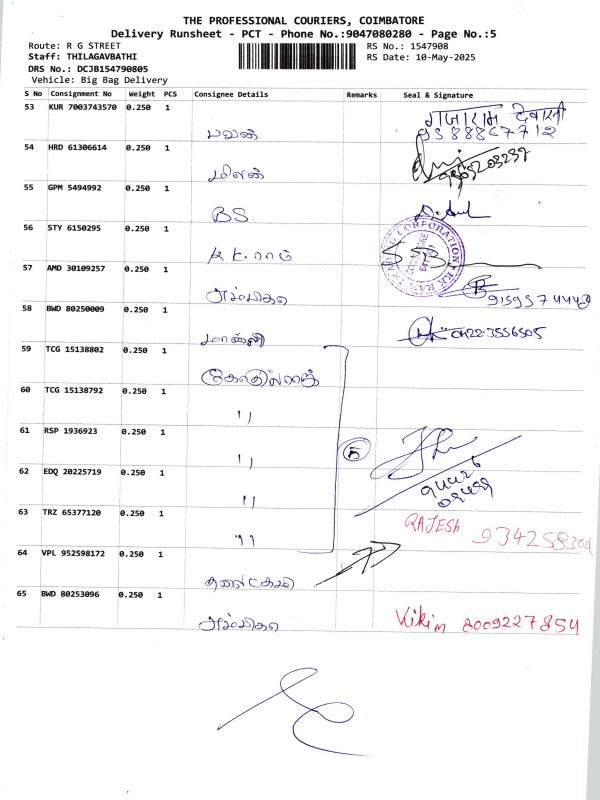 THE PROFESSIONAL COURIERS, COIMBATORE
Delivery Runsheet - PCT - Phone No.:9047080280 - Page No.:5
Route: R G STREET
RS No.: 1547908
Staff: THILAGAVBATHI
RS Date: 10-May-2025
DRS No.: DCJB154790805
Vehicle: Big Bag Delivery
S No Consignment No Weight PCS Consignee Details Remarks Seal & Signature
53 KUR 7003743570 0.250 1
गजाराम देवासी
பவன்
54 HRD 61306614 0.250 1
மிலன்
55 GPM 5494992 0.250 1
BS.
56 STY 6150295 0.250 1
K K. ராம்
57 AMD 30109257 0.250 1
அம்பிகை
9159574440
58 BWD 80250009 0.250 1
0422-3556505
59 TCG 15138802 0.250 1
60 TCG 15138792 0.250 1
"
61 RSP 1936923 0.250 1
"
5
62 EDQ 20225719 0.250 1
"
63 TRZ 65377120 0.250 1
"
RAJESH
64 VPL 952598172 0.250 1
65 BWD 80253096 0.250 1
அம்பிகை
Vikim 8009227854